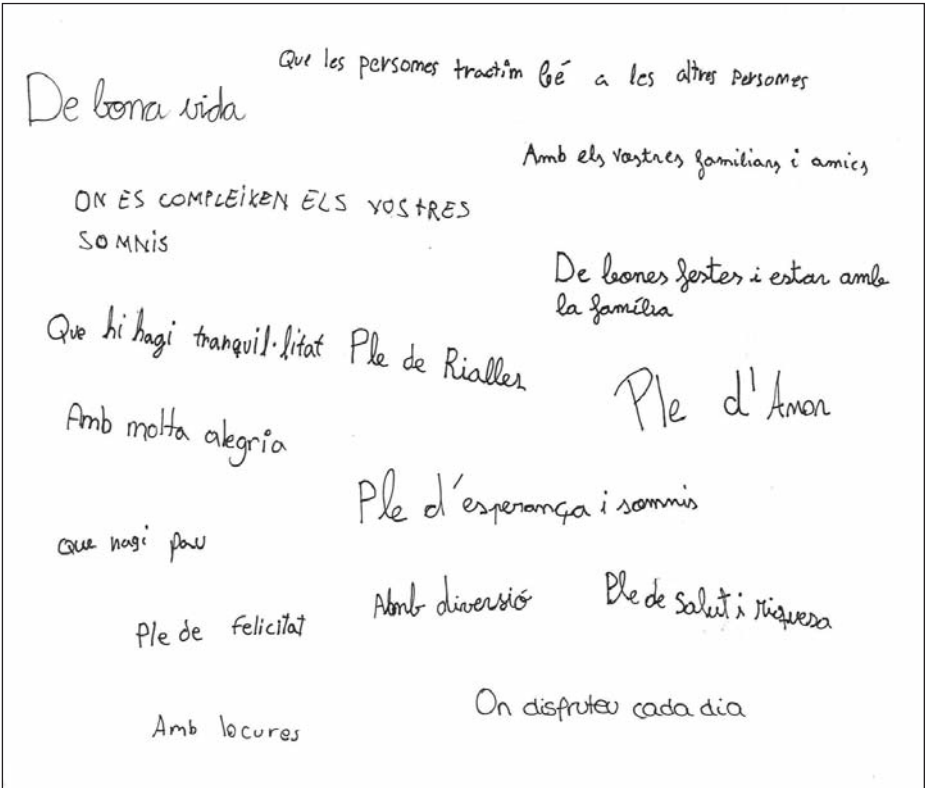 Que les persones tractim bé a les altres persones
De bona vida
Amb els vostres familiars i amics
ON ES COMPLEIXEN ELS VOSTRES
SOMNIS
De bones festes i estar amb
la família
Que hi hagi tranquil·litat
Ple de Rialles
Ple d'Amor
Amb molta alegria
Ple d'esperança i somnis
Que hagi pau
Amb diversió
Ple de salut i riquesa
Ple de felicitat
On disfruteu cada dia
Amb locures